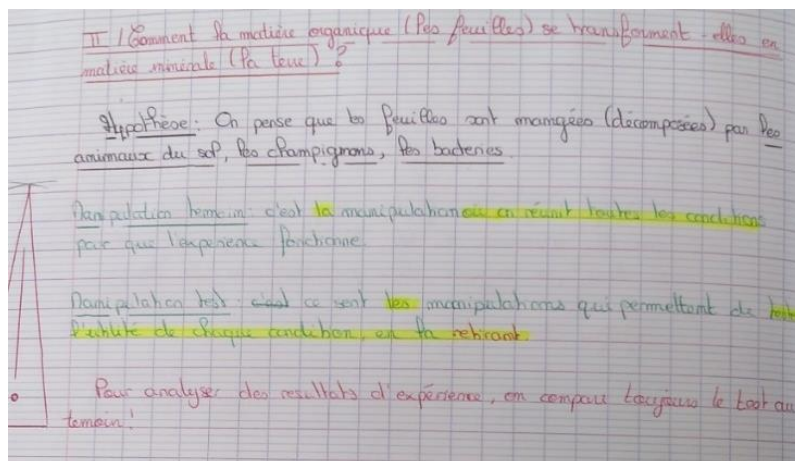 II / Comment la matière organique (les feuilles) se transforment-elles en
matière minérale (la terre) ?
Hypothèse : On pense que les feuilles sont mangées (décomposées) par les
animaux du sol, les champignons, les bacteries.
Manipulation temoin : c'est la manipulation où on réunit toutes les conditions
pour que l'experience fonctionne.
Manipulation test : ce sent les manipulations qui permettent de
l'utilité de chaque condition, en la retirant.
Pour analyser des resultats d'expérience, on compare toujours le test au
temoin !